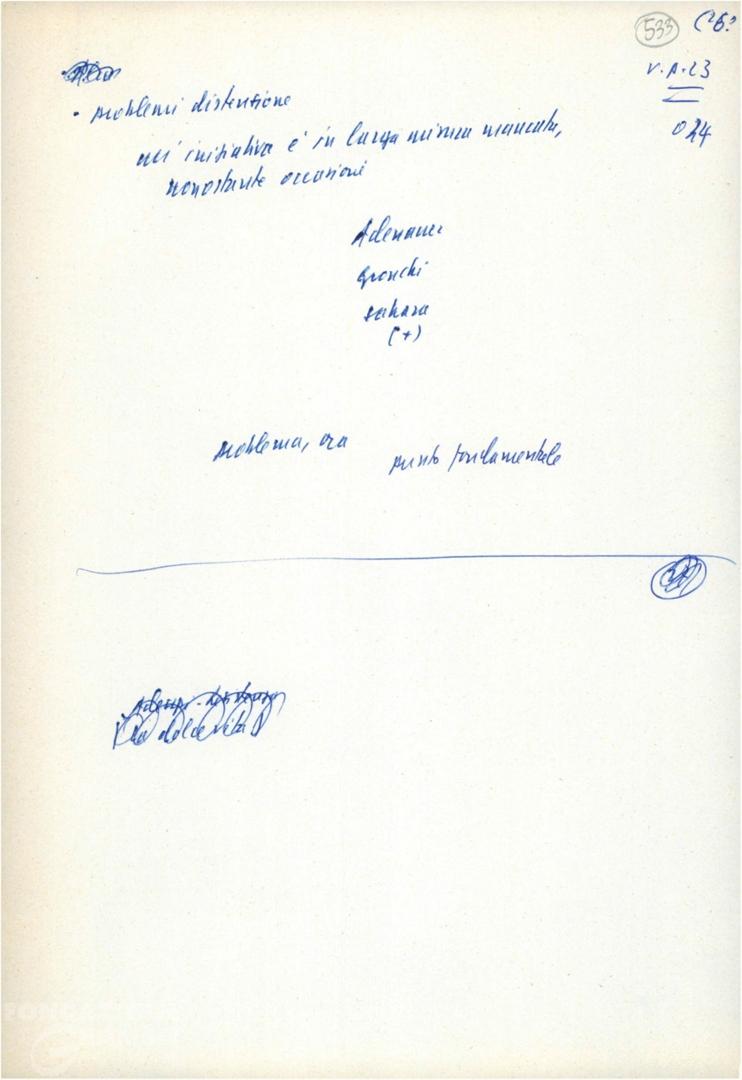 533
V.A.23
024
• problemi distensione
ns/ iniziativa è in larga misura mancata,
nonostante occasioni
Adenauer
Gronchi
Sahara
(+)
problema, ora punto fondamentale
la dolce vita